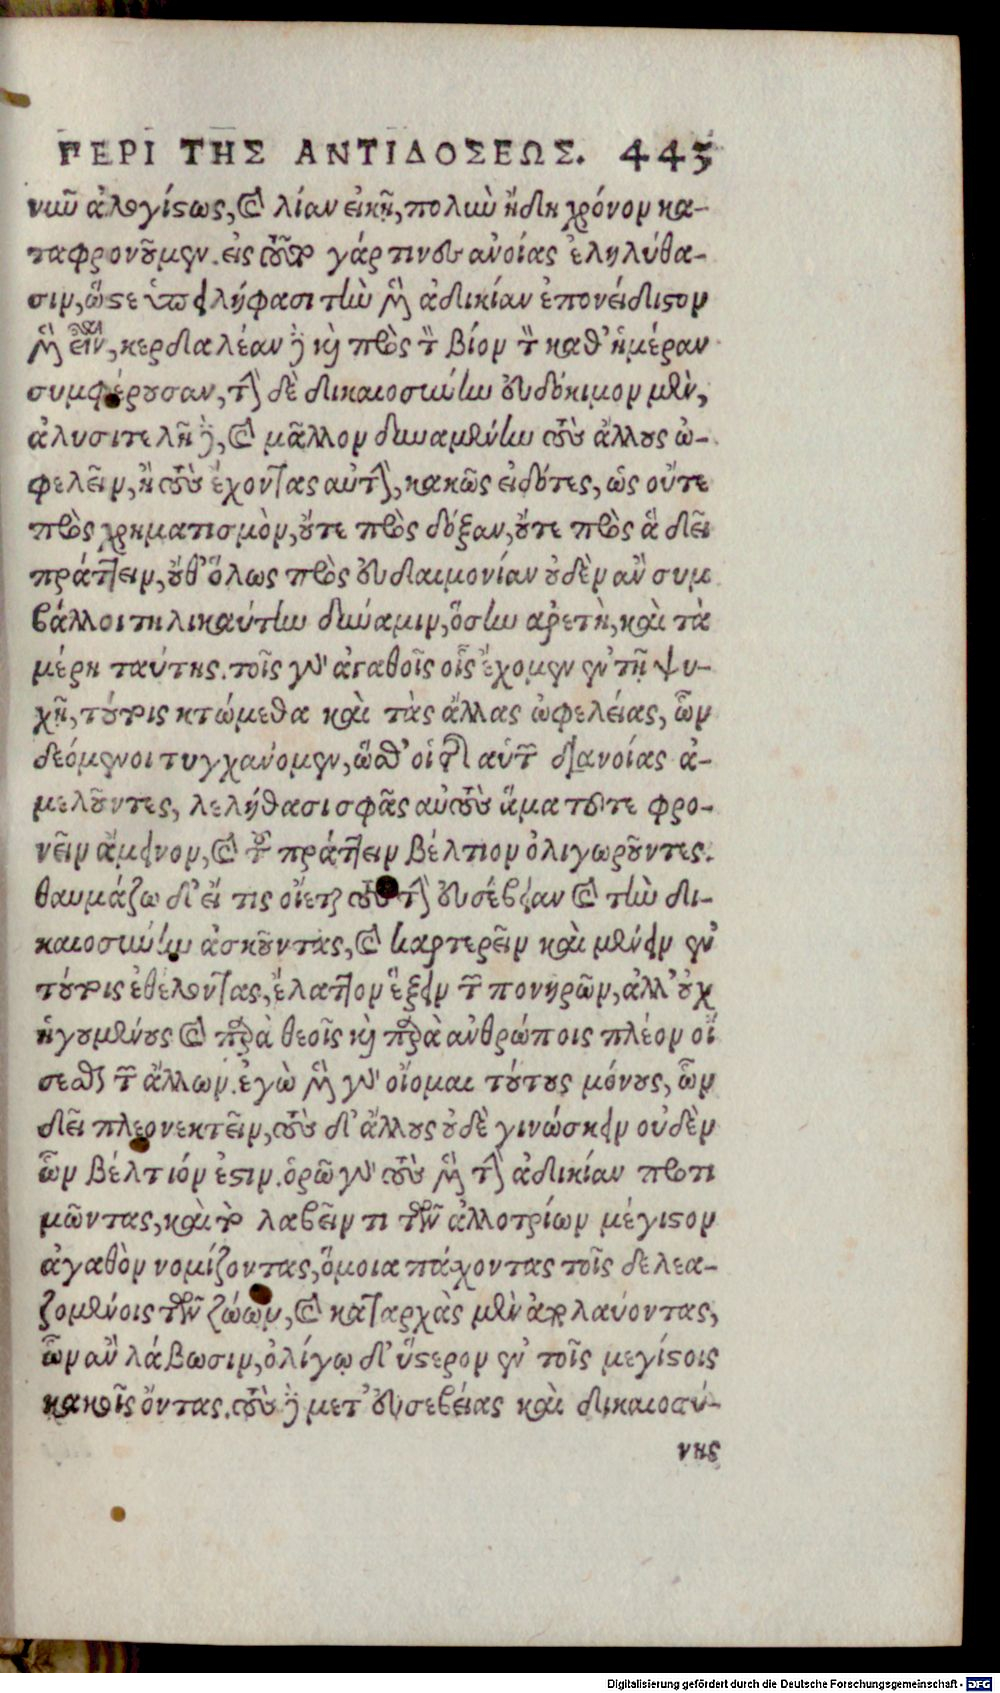 ΠΕΡΙ ΤΗΣ ΑΝΤΙΔΟΣΕΩΣ. 445
νῦν ἀλογίστως, καὶ λίαν εἰκῇ, πολὺν ἤδη χρόνον κα-
ταφρονοῦμεν. εἰς τοῦτο γάρ τινες ἀνοίας ἐληλύθα-
σιν, ὥστε ὑπειλήφασι τὴν μὲν ἀδικίαν ἐπονείδιστον
μὲν εἶναι, κερδαλέαν δὲ καὶ πρὸς τὸν βίον τὸν καθ' ἡμέραν
συμφέρουσαν, τὴν δὲ δικαιοσύνην εὐδόκιμον μὲν,
ἀλυσιτελῆ δὲ, καὶ μᾶλλον δυναμένην τοὺς ἄλλους ὠ-
φελεῖν, ἢ τοὺς ἔχοντας αὐτὴν, κακῶς εἰδότες, ὡς οὔτε
πρὸς χρηματισμὸν, οὔτε πρὸς δόξαν, οὔτε πρὸς ἃ δεῖ
πράττειν, οὔθ' ὅλως πρὸς εὐδαιμονίαν οὐδὲν ἂν συμ
βάλλοι τηλικαύτην δύναμιν, ὅσην ἀρετὴ, καὶ τὰ
μέρη ταύτης. τοῖς γὰρ ἀγαθοῖς οἷς ἔχομεν ἐν τῇ ψυ-
χῇ, τούτοις κτώμεθα καὶ τὰς ἄλλας ὠφελείας, ὧν
δεόμενοι τυγχάνομεν, ὥσθ' οἱ τῆς αὑτῶν διανοίας ἀ-
μελοῦντες, λελήθασι σφᾶς αὐτοὺς ἅμα τοῦτε φρο-
νεῖν ἄμεινον, καὶ τοῦ πράττειν βέλτιον ὀλιγωροῦντες.
θαυμάζω δ' εἴ τις οἴεται τοὺς τὴν εὐσέβειαν καὶ τὴν δι-
καιοσύνην ἀσκοῦντας, καὶ καρτερεῖν καὶ μένειν ἐν
τούτοις ἐθέλοντας, ἔλαττον ἕξειν τῶν πονηρῶν, ἀλλ' οὐχ
ἡγουμένους καὶ παρὰ θεοῖς καὶ παρὰ ἀνθρώποις πλέον οἴ
σεσθαι τῶν ἄλλων. ἐγὼ μὲν γὰρ οἴομαι τούτους μόνους, ὧν
δεῖ πλεονεκτεῖν, τοὺς δ' ἄλλους οὐδὲ γινώσκειν οὐδὲν
ὧν βέλτιόν ἐστιν. ὁρῶ γὰρ τοὺς μὲν τὴν ἀδικίαν προτι
μῶντας, καὶ τὸ λαβεῖν τι τῶν ἀλλοτρίων μέγιστον
ἀγαθὸν νομίζοντας, ὅμοια πάσχοντας τοῖς δελεα-
ζομένοις τῶν ζώων, καὶ κατ' ἀρχὰς μὲν ἀπολαύοντας,
ὧν ἂν λάβωσιν, ὀλίγῳ δ' ὕστερον ἐν τοῖς μεγίστοις
κακοῖς ὄντας. τοὺς δὲ μετ' εὐσεβείας καὶ δικαιοσύ-
νης
Digitalisierung gefördert durch die Deutsche Forschungsgemeinschaft - DFG